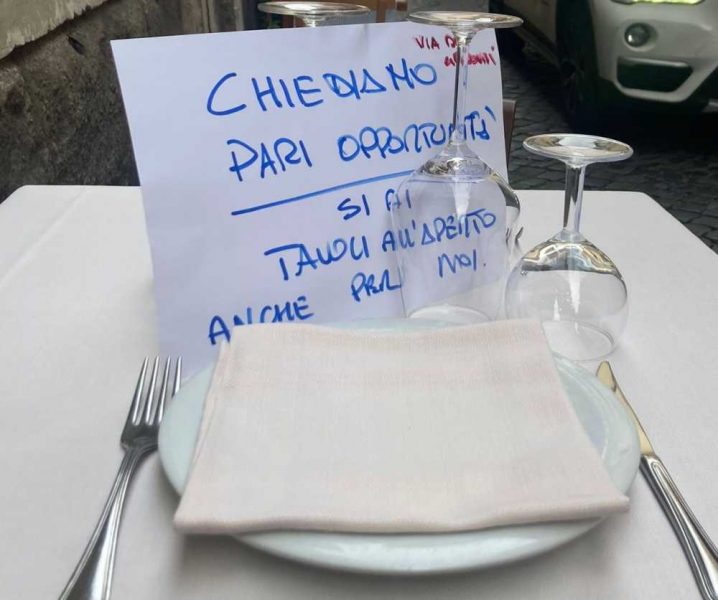 VIA DEI
CHIEDIAMO
PARI OPPORTUNITÀ
SI AI
TAVOLI ALL'APERTO
ANCHE PER NOI.